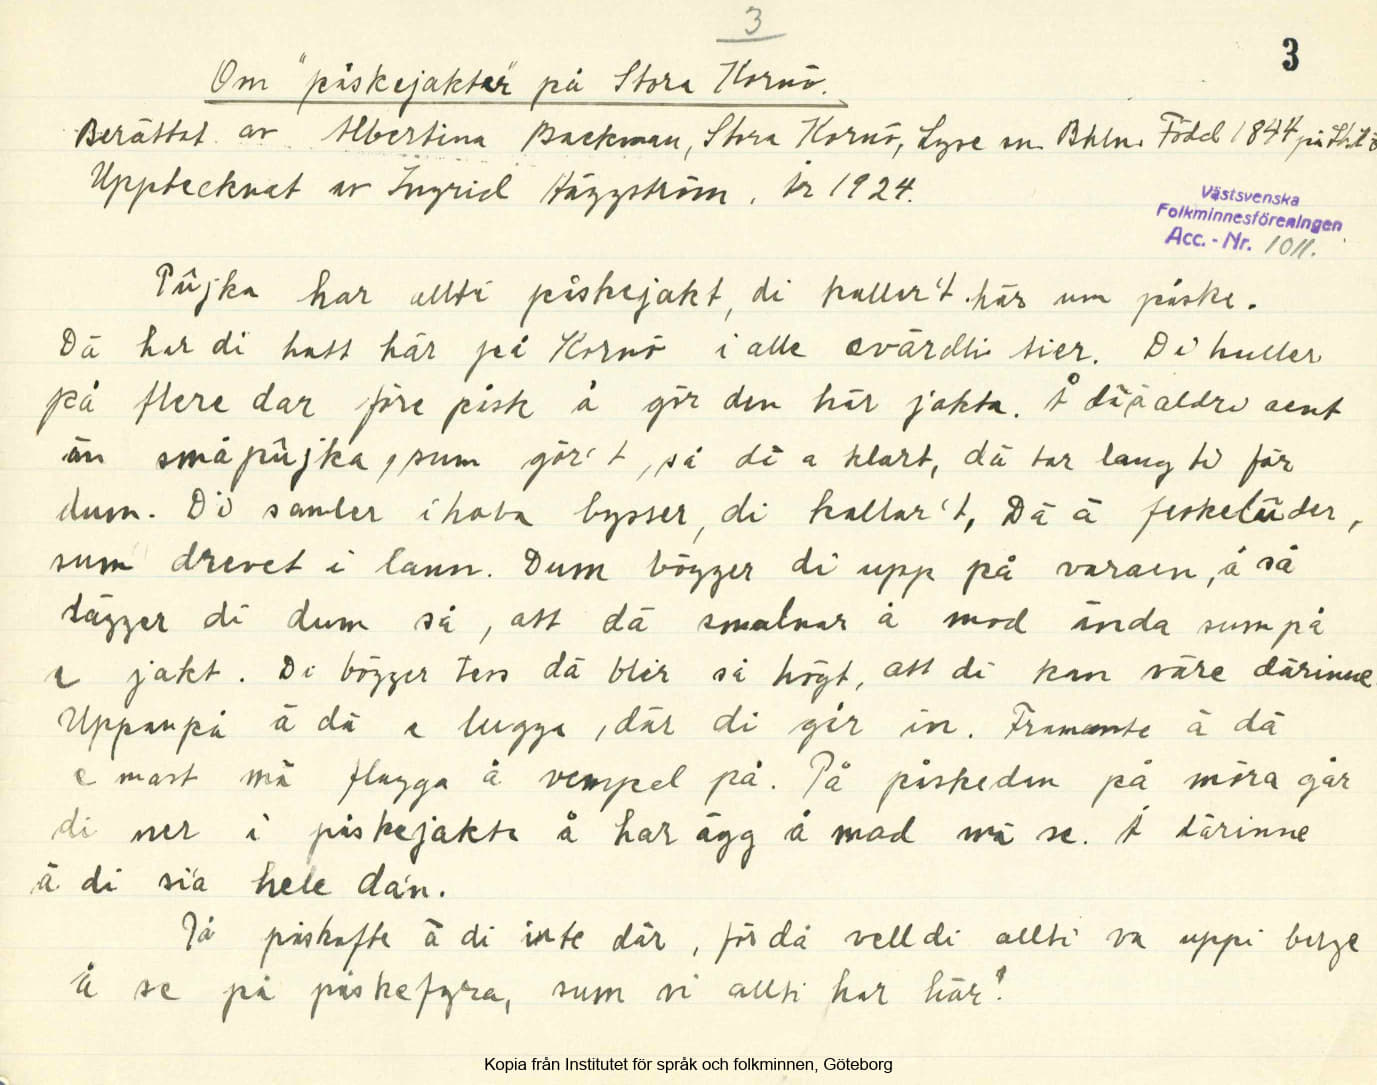 3
3
Om "påskejakter" på Stora Kornö.
Berättat av Albertina Backman, Stora Kornö, Lyse sn. Bhln. Född 1844 på
Upptecknat av Ingrid Häggström, år 1924.
Västsvenska
Folkminnesföreningen
Acc.-Nr. 1011.
Pûjka har allti påskejakt, di kallar't här um påske.
Dä har di hatt här på Kornö i alle evärdli tier. Di huller
på flere dar före påsk å gör den här jakta. Å dä ä aldri aent
än småpûjka, sum gör't, så dä a klart, dä tar lang ti för
dum. Di samler ihoba bysser, di kallar't, Dä ä feskelûder,
sum drevet i lann. Dum bögger di upp på varaen, å så
lägger di dum så, att dä smalnar å mod ända sum på
e jakt. Di bögger tess dä blir så högt, att di kan väre därinne
Uppanpå ä dä e lugga, där di går in. Framante ä dä
e mast mä flagga å vempel på. På påskedan på möra går
di ner i påskejakta å har ägg å mad mä se. Å därinne
ä di sia hele dan.
På påskafte ä di inte där, för då vell di allti va uppi berge
å se på påskefyra, sum vi allti har här!
Kopia från Institutet för språk och folkminnen, Göteborg